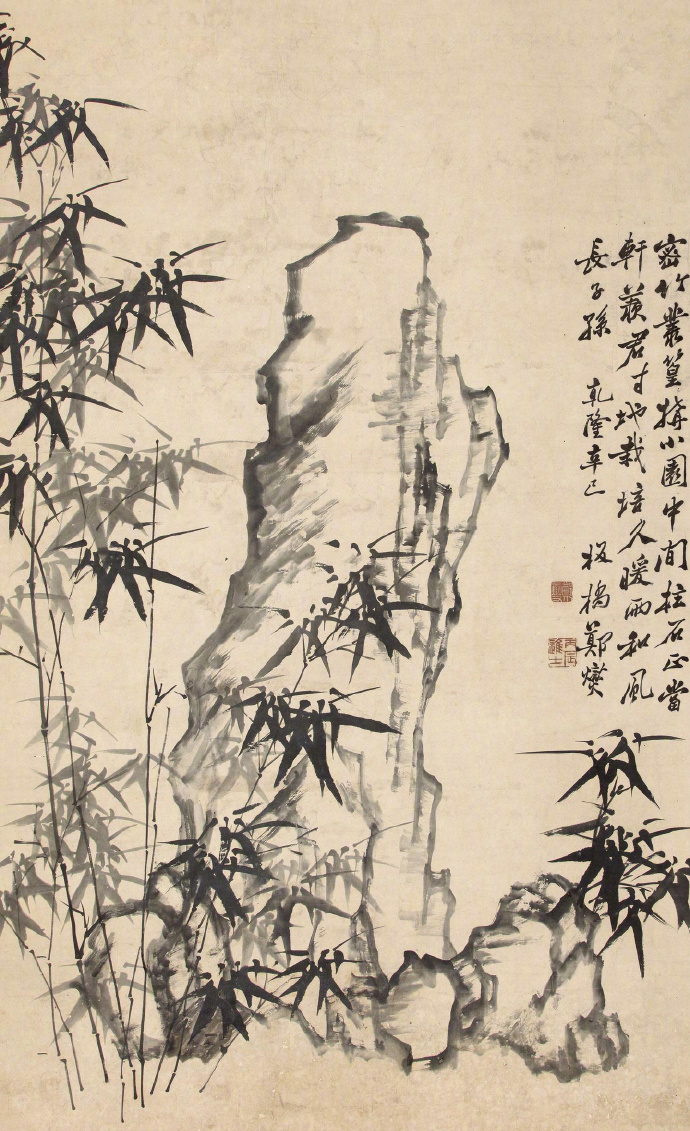 密竹叢篁搆小園中間柱石正當
軒君寸地栽培久暖雨和風
長子孫 乾隆辛巳 板橋鄭燮
丙辰進士